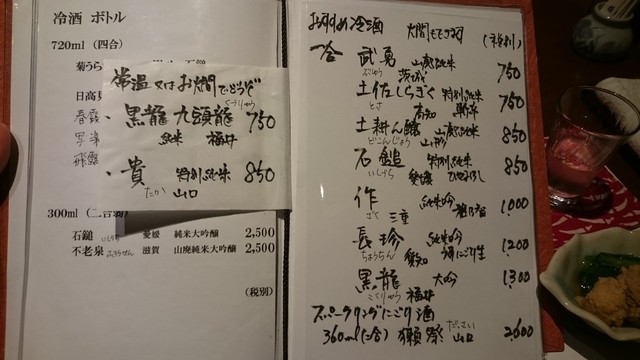 冷酒 ボトル
720ml (四合)
菊うら
日高見
春霞
写楽
飛露
常温又はお燗でどうぞ
くずりゅう
・黒龍 九頭龍 750
純米 福井
・貴 特別純米 850
たか 山口
300ml (二合弱)
石鎚 いしづち 愛媛 純米大吟醸 2,500
不老泉 ふろうせん 滋賀 山廃純米大吟醸 2,500
(税別)
おすすめ冷酒 お燗もできます (税別)
一合 武勇 山廃純米 750
ぶゆう 茨城
土佐しらぎく 特別純米 750
とさ 高知
土耕ん醸 山廃純米 850
どこんじょう 山形
石鎚 特別純米 850
いしづち 愛媛 ひやおろし
作 純米吟 穂乃智 1,000
ざく 三重
長珍 純米吟 1,200
ちょうちん 愛知 にごり生
黒龍 大吟 1,300
こくりゅう 福井
スパークリングにごり酒
360ml(二合) 獺祭 だっさい 山口 2,600